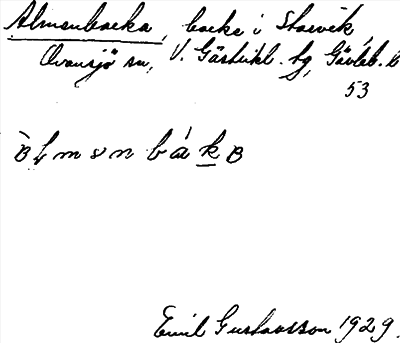 Almsnbacka, backe i Storvik,
Ovansjö sn, V. Gästrikl. tg, Gävleb. l.
53
Emil Gustavsson 1929.